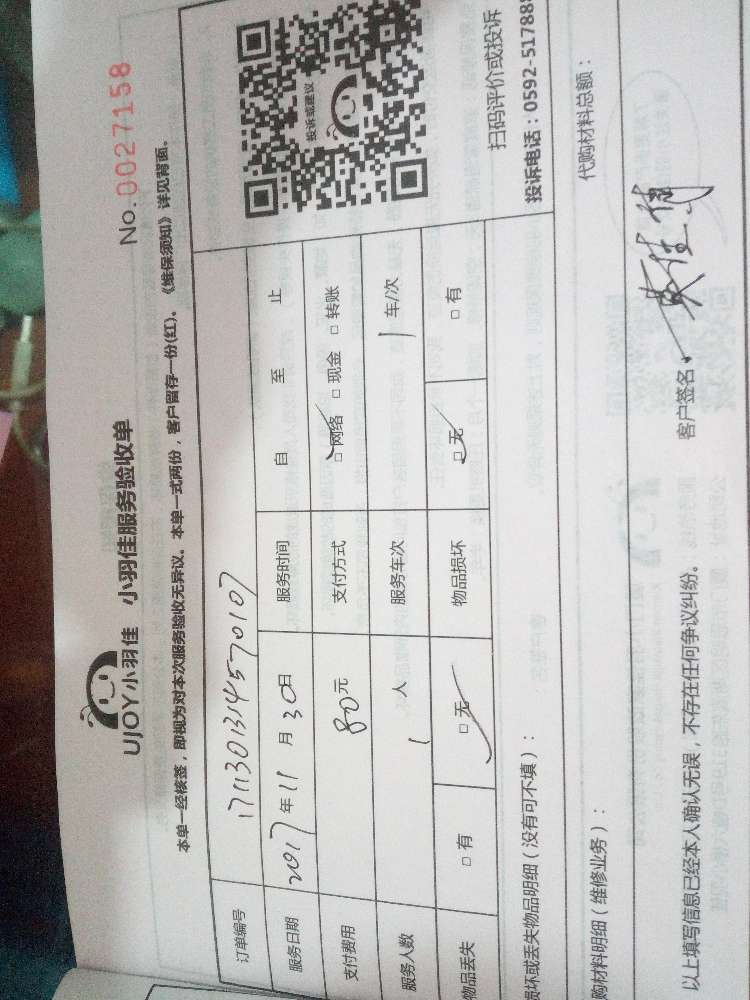 UJOY小羽佳 小羽佳服务验收单
No.0027158
本单一经核签，即视为对本次服务验收无异议。本单一式两份，客户留存一份(红)。《维保须知》详见背面。
订单编号 1711301314570107
服务日期 2017年11月30日 服务时间 自 至 止
支付费用 80元 支付方式 □网络 □现金 □转账
服务人数 1人 服务车次 1车/次
物品丢失 □有 □无 物品损坏 □无 □有
投诉或建议
扫码评价或投诉
投诉电话：0592-517888
损坏或丢失物品明细（没有可不填）：
购材料明细（维修业务）： 代购材料总额：
以上填写信息已经本人确认无误，不存在任何争议纠纷。 客户签名：